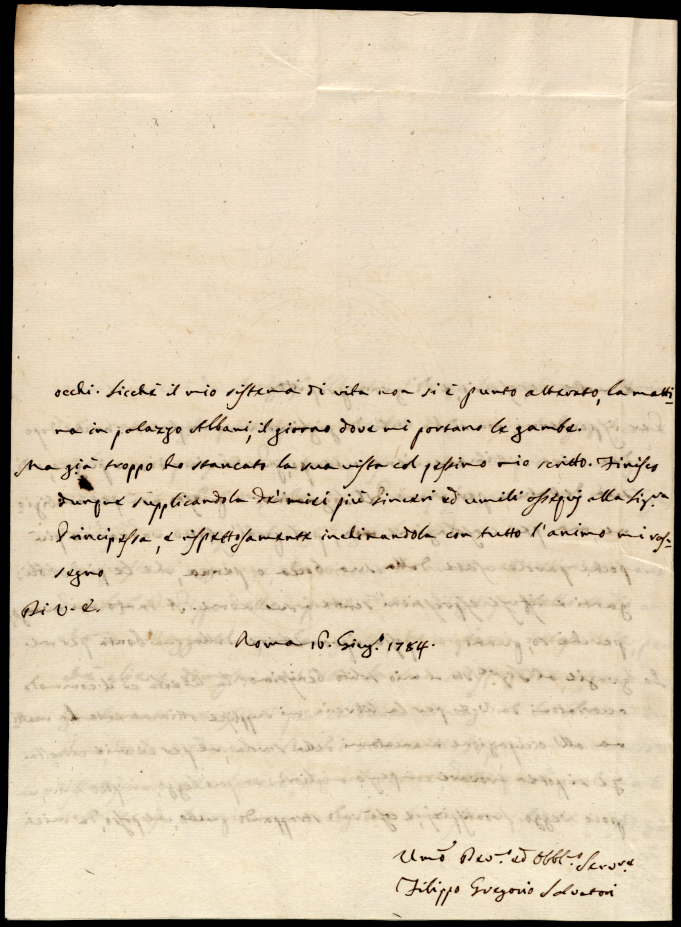 occhi. Sicchè il mio sistema di vita non si è punto alterato, la matti-
na in palazzo Albani, il giorno dove mi portano le gambe.
Ma già troppo ho stancato la sua vista col pessimo mio scritto. Finisco
dunque supplicandola de' miei più sinceri ed umili ossequj alla Sig.ra
Principessa, e rispettosamente inclinandola con tutto l'animo mi ras-
segno
Di V. E.
Roma 16. Giug.o 1784.
Umo Dev.o ed Obbl.o Servre
Filippo Gregorio Salvatori